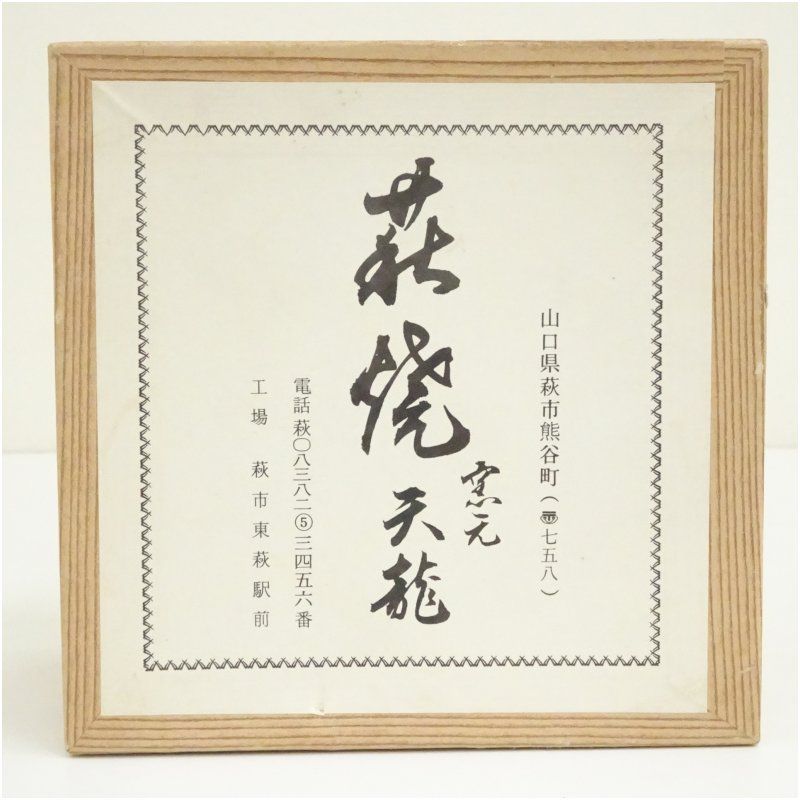 山口県萩市熊谷町（〠七五八）
窯元
萩焼天龍
電話萩〇八三八二⑤三四五六番
工場　萩市東萩駅前